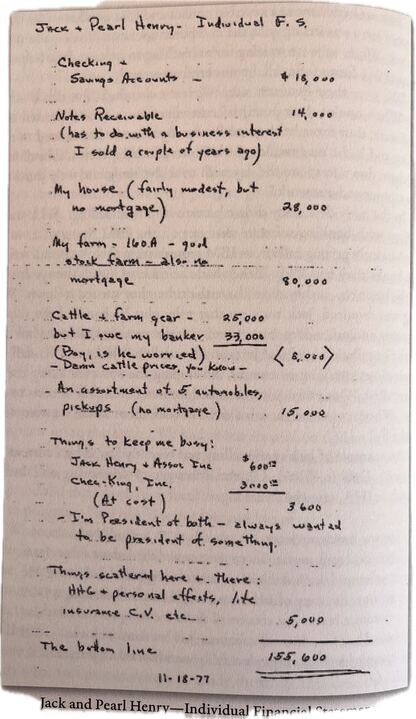 Jack + Pearl Henry - Individual F. S.
Checking +
Savings Accounts - $ 18,000
Notes Receivable 14,000
(has to do with a business interest
I sold a couple of years ago)
My house (fairly modest, but
no mortgage) 28,000
My farm - 160A - good
stock farm - also no
mortgage 80,000
Cattle + farm gear - 25,000
but I owe my banker 33,000
(Boy, is he worried) <8,000>
- Damn cattle prices, you know -
An assortment of 5 automobiles,
pickups (no mortgage) 15,000
Things to keep me busy:
Jack Henry + Assoc Inc $ 600.00
Chec-King, Inc. 3000.00
(At cost) 3600
- I'm President of both - always wanted
to be president of something.
Things scattered here + there:
HHG + personal effects, life
insurance C.V. etc. 5,000
The bottom line 155,600
11-18-77
Jack and Pearl Henry—Individual Financial